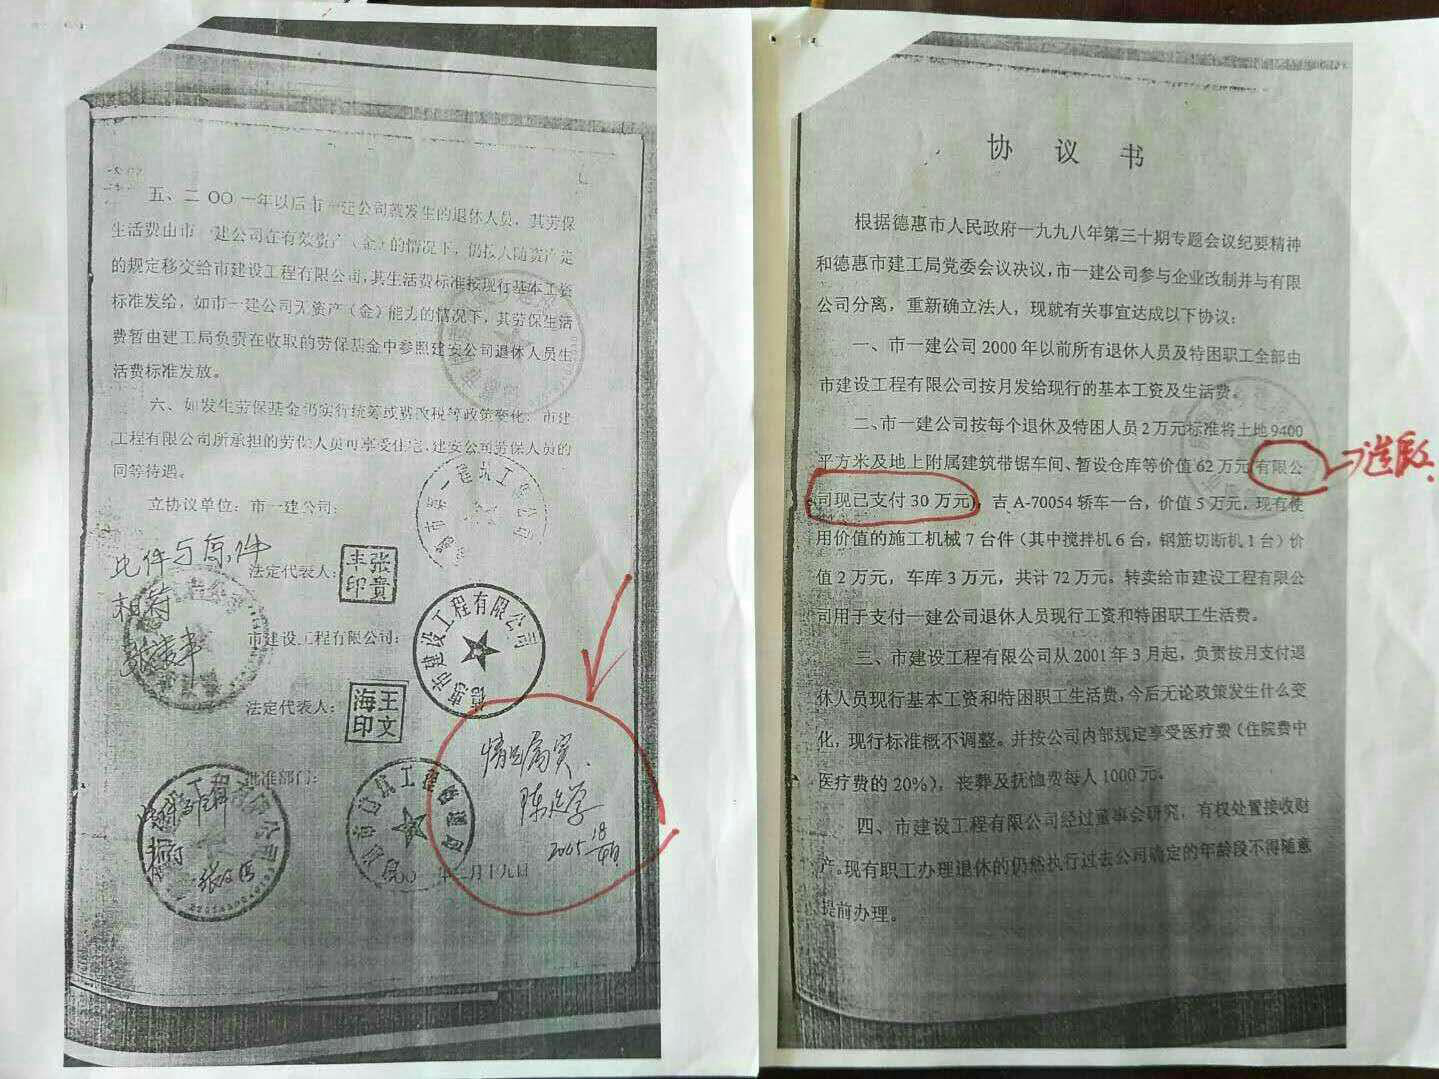 协议书
根据德惠市人民政府一九九八年第三十期专题会议纪要精神
和德惠市建工局党委会议决议，市一建公司参与企业改制并与有限
公司分离，重新确立法人，现就有关事宜达成以下协议：
一、市一建公司2000年以前所有退休人员及特困职工全部由
市建设工程有限公司按月发给现行的基本工资及生活费。
二、市一建公司按每个退休及特困人员2万元标准将土地9400
平方米及地上附属建筑带锯车间、暂设仓库等价值62万元(有限公
司现已支付30万元)，吉A-70054轿车一台，价值5万元，现有使
用价值的施工机械7台件（其中搅拌机6台，钢筋切断机1台）价
值2万元，车库3万元，共计72万元。转卖给市建设工程有限公
司用于支付一建公司退休人员现行工资和特困职工生活费。
三、市建设工程有限公司从2001年3月起，负责按月支付退
休人员现行基本工资和特困职工生活费，今后无论政策发生什么变
化，现行标准概不调整。并按公司内部规定享受医疗费（住院费中
医疗费的20%），丧葬及抚恤费每人1000元。
四、市建设工程有限公司经过董事会研究，有权处置接收财
产。现有职工办理退休的仍然执行过去公司确定的年龄段不得随意
提前办理。
五、二OO一年以后市一建公司新发生的退休人员，其劳保
生活费由市一建公司在有效资产（金）的情况下，仍按人随资产走
的规定移交给市建设工程有限公司，其生活费标准按现行基本工资
标准发给，如市一建公司无资产（金）能力的情况下，其劳保生活
费暂由建工局负责在收取的劳保基金中参照建安公司退休人员生
活费标准发放。
六、如发生劳保基金仍实行统筹或费改税等政策变化，市建
工程有限公司所承担的劳保人员可享受住宅、建安公司劳保人员的
同等待遇。
立协议单位：市一建公司：
此件与原件
相符
法定代表人：
张贵丰印
市建设工程有限公司：
德惠市建设工程有限公司
法定代表人：
王文海印
批准部门：
情况属实.
陈延学
2005
相符
一年二月十九日